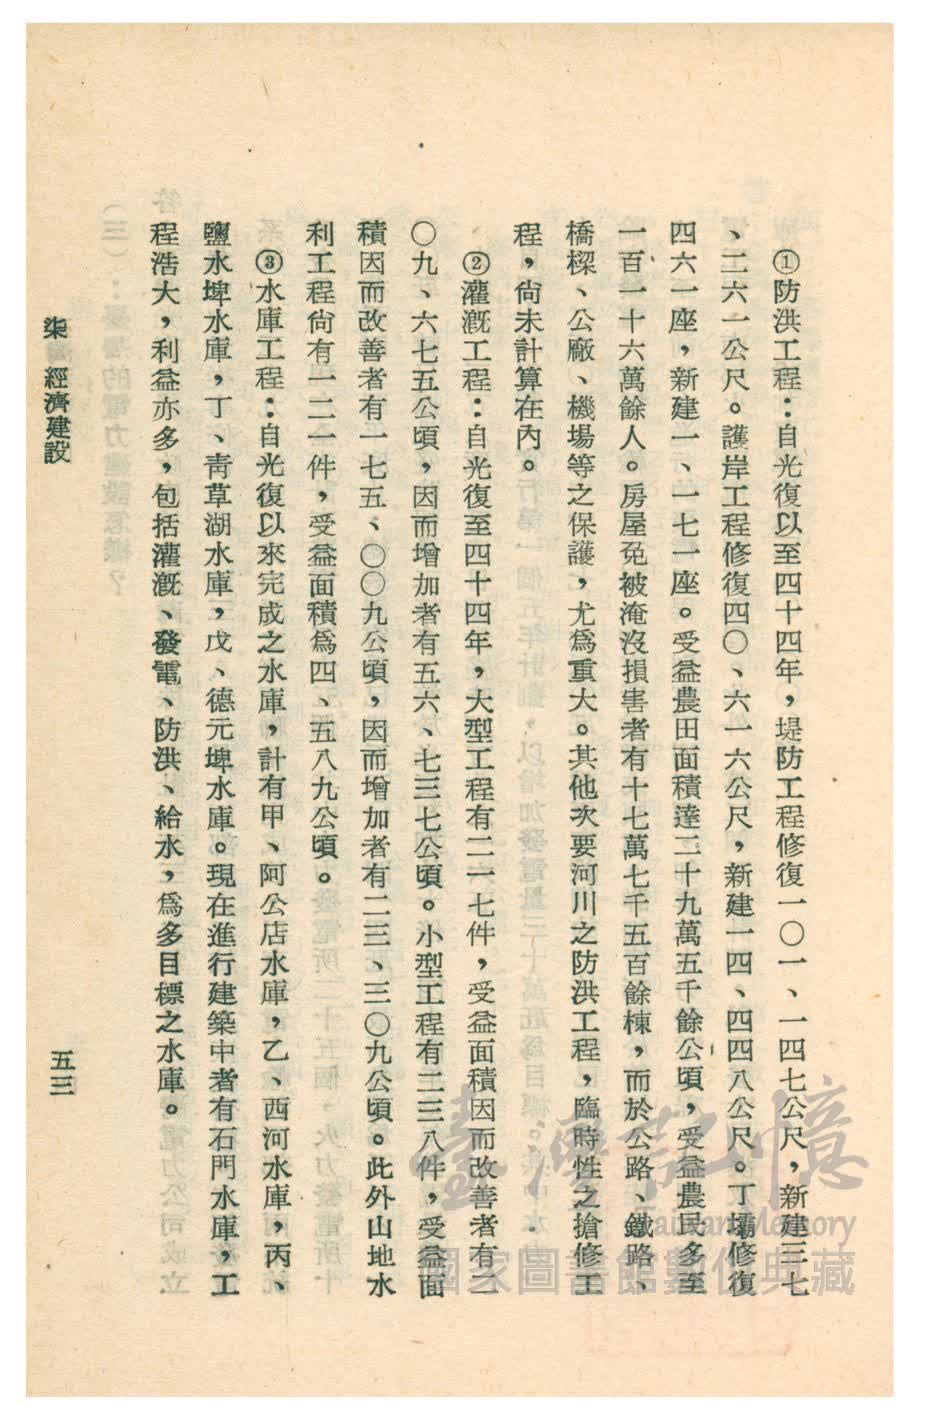 ①防洪工程：自光復以至四十四年，堤防工程修復一〇一、一四七公尺，新建三七
、二六一公尺。護岸工程修復四〇、六一六公尺，新建一四、四四八公尺。丁壩修復
四六一座，新建一、一七一座。受益農田面積達三十九萬五千餘公頃，受益農民多至
一百一十六萬餘人。房屋免被淹沒損害者有十七萬七千五百餘棟，而於公路、鐵路、
橋樑、公廠、機場等之保護，尤爲重大。其他次要河川之防洪工程，臨時性之搶修工
程，尚未計算在內。
②灌漑工程：自光復至四十四年，大型工程有二一七件，受益面積因而改善者有二
〇九、六七五公頃，因而增加者有五六、七三七公頃。小型工程有二三八件，受益面
積因而改善者有一七五、〇〇九公頃，因而增加者有二三、三〇九公頃。此外山地水
利工程尙有一二一件，受益面積爲四、五八九公頃。
③水庫工程：自光復以來完成之水庫，計有甲、阿公店水庫，乙、西河水庫，丙、
鹽水埤水庫，丁、靑草湖水庫，戊、德元埤水庫。現在進行建築中者有石門水庫，工
程浩大，利益亦多，包括灌漑、發電、防洪、給水，爲多目標之水庫。
柒 經濟建設
五三
臺灣記憶
Taiwan Memory
國家圖書館數位典藏